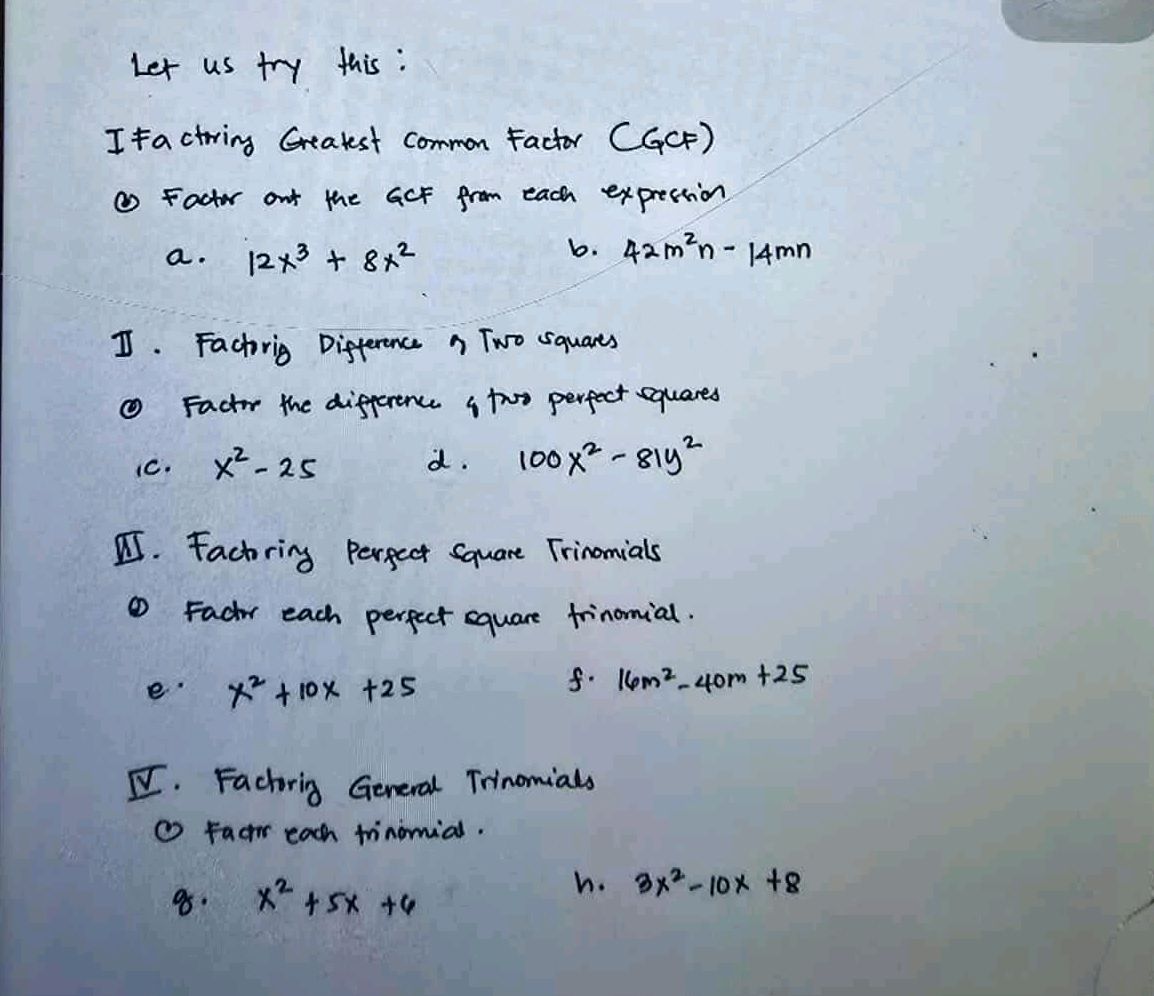 Let us try this :
I Factoring Greatest Common Factor (GCF)
Factor out the GCF from each expression
a. 12x³ + 8x² b. 42m²n - 14mn
II. Factorig Difference of Two squares
Factor the difference of two perfect squares
c. x² - 25 d. 100x² - 81y²
III. Factoring Perfect Square Trinomials
Factor each perfect square trinomial.
e. x² + 10x + 25 f. 16m² - 40m + 25
IV. Factorig General Trinomials
Factor each trinomial.
g. x² + 5x + 6 h. 3x² - 10x + 8